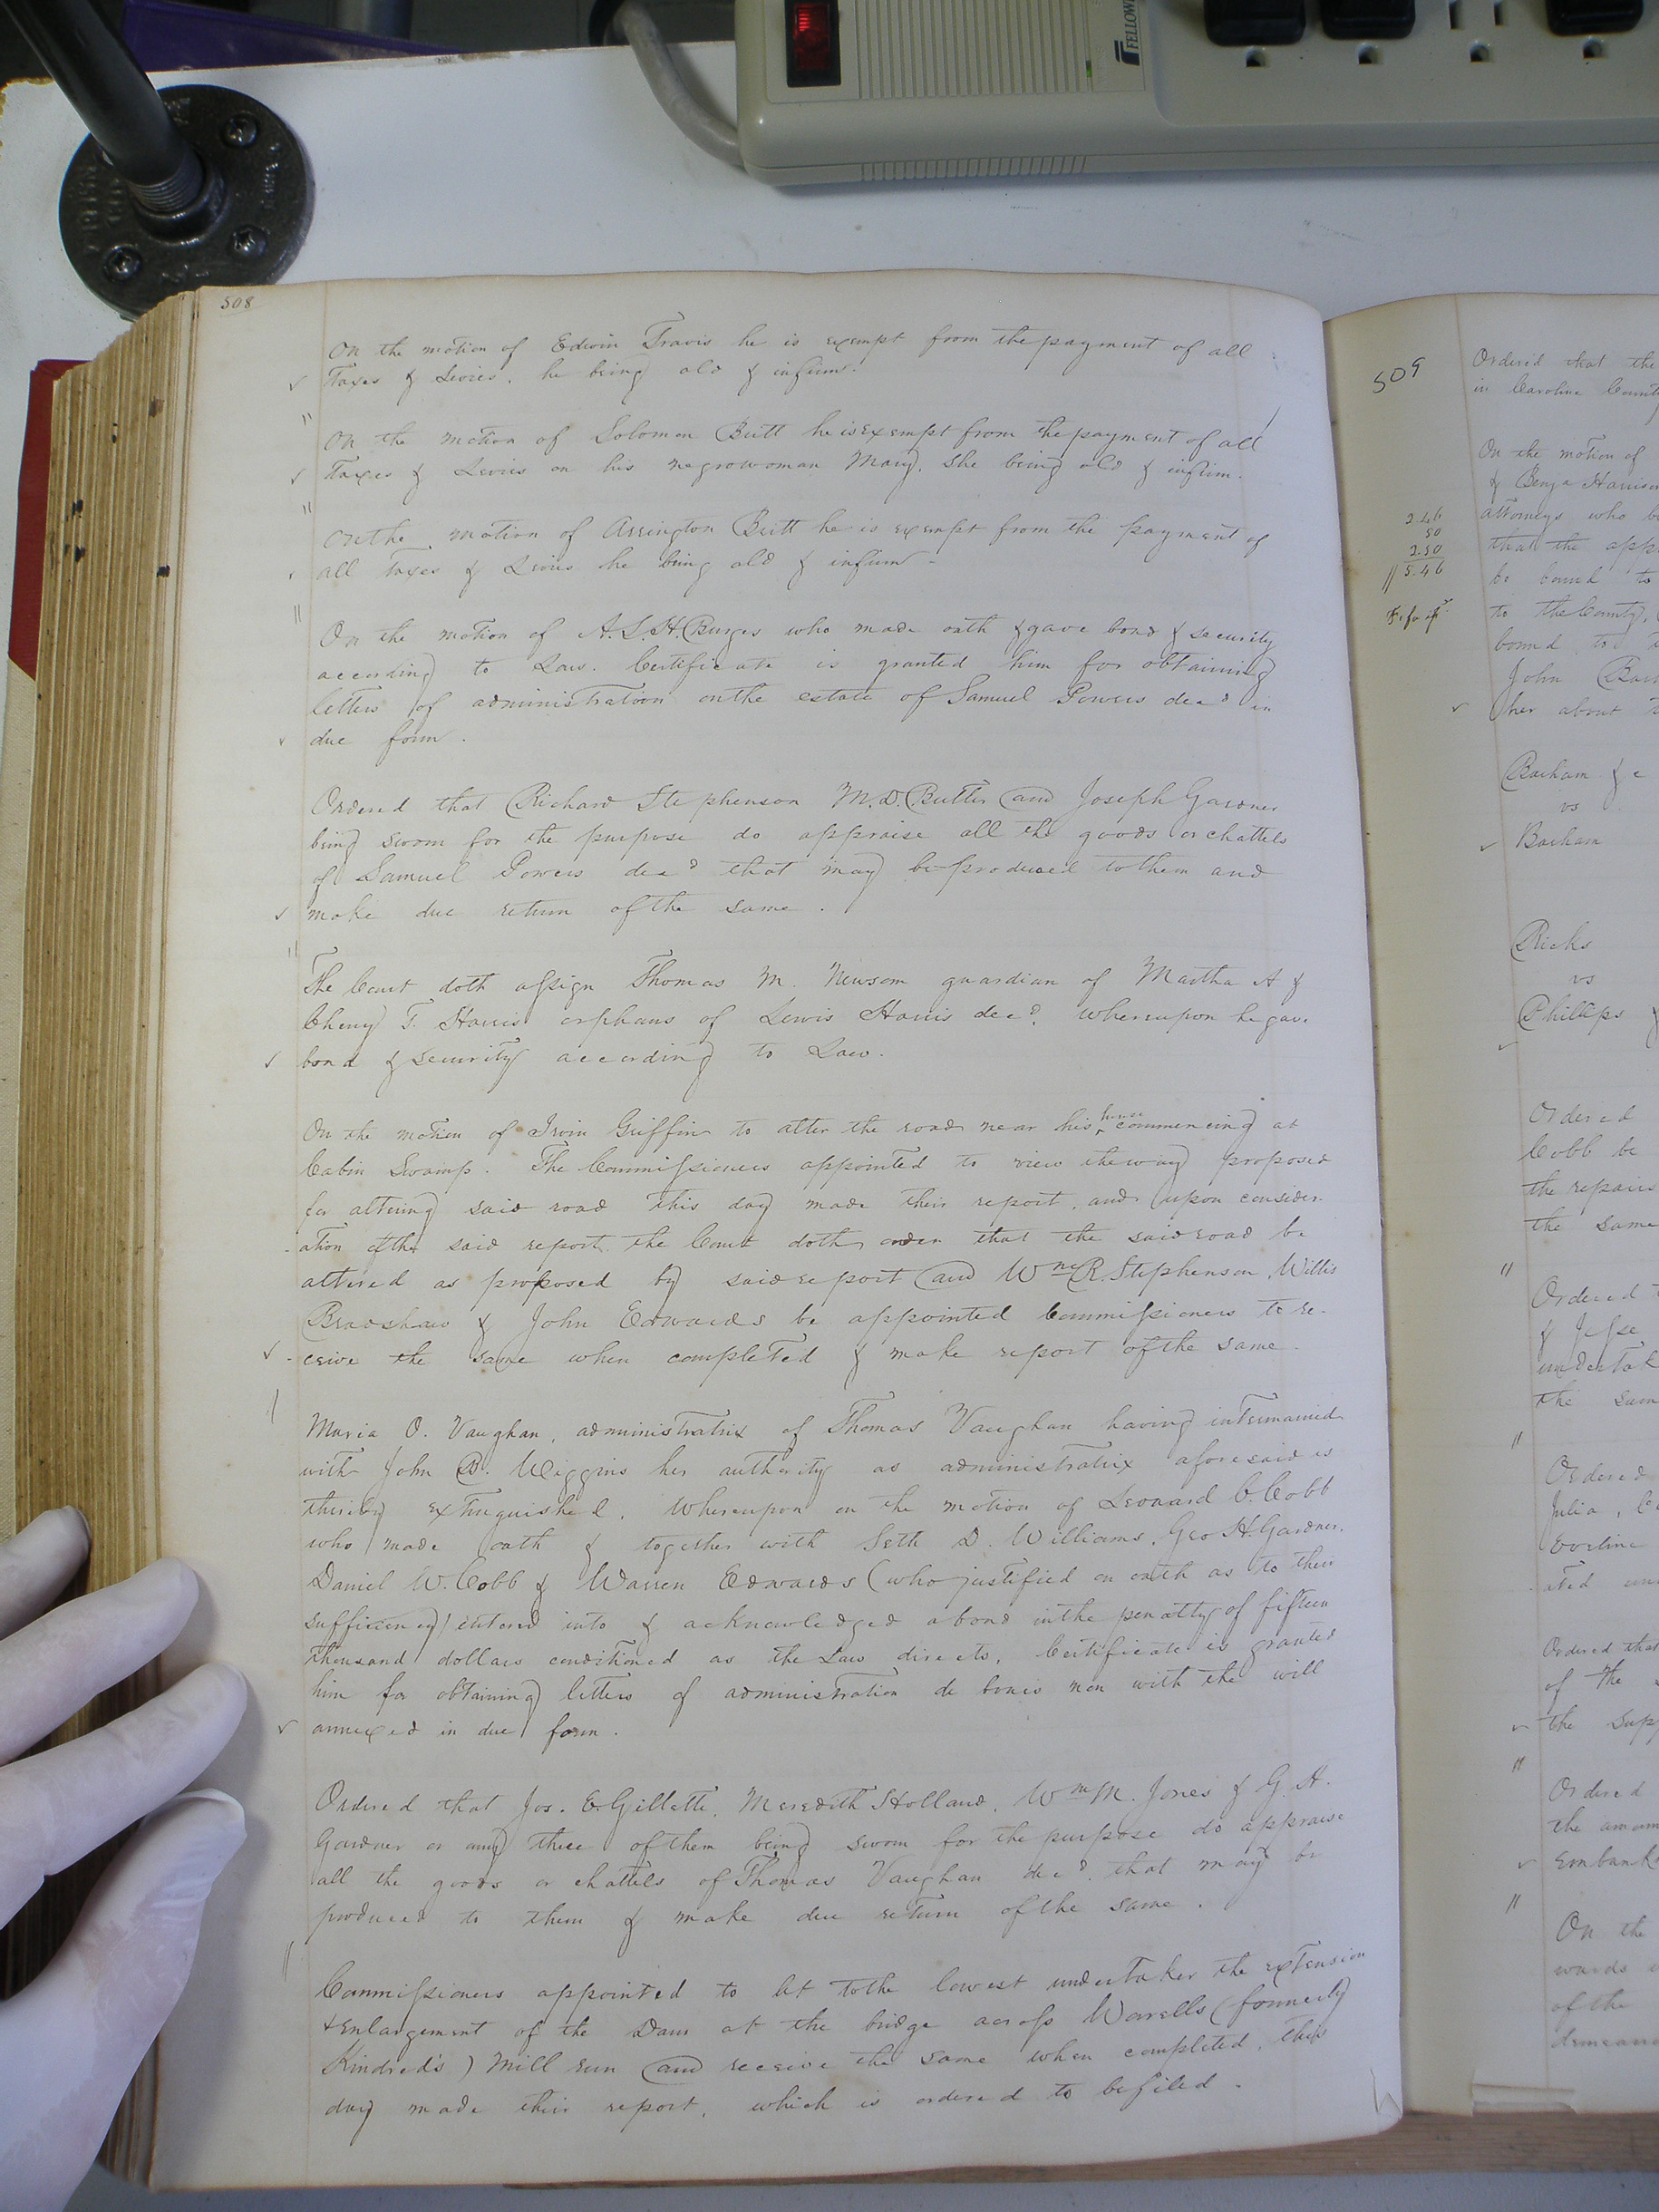 FELLOW
508
On the motion of Edwin Travis he is exempt from the payment of all
Taxes & Levies, he being old & infirm.
On the motion of Solomon Butt he is exempt from the payment of all
Taxes & Levies on his negro woman Mary, she being old & infirm.
On the motion of Arrington Butt he is exempt from the payment of
all Taxes & Levies he being old & infirm -
On the motion of A. S. H. Burges who made oath & gave bond & security
according to Law. Certificate is granted him for obtaining
letters of administration on the estate of Samuel Powers decd in
due form.
Ordered that Richard Stephenson M. D. Butler and Joseph Gardner
being sworn for the purpose do appraise all the goods or chattels
of Samuel Powers decd that may be produced to them and
make due return of the same.
The Court doth assign Thomas M. Newsom guardian of Martha A &
Cherry T. Harris orphans of Lewis Harris decd. whereupon he gave
bond & security according to Law.
On the motion of Irvin Griffin to alter the road near his house commencing at
Cabin Swamp. The Commissioners appointed to view the way proposed
for altering said road this day made their report, and upon consider-
-ation of the said report the Court doth order that the said road be
altered as proposed by said report and Wm R. Stephenson, Willis
Bradshaw & John Edwards be appointed Commissioners to re-
-ceive the same when completed & make report of the same.
Maria O. Vaughan, administratrix of Thomas Vaughan having intermarried
with John B. Wiggins her authority as administratrix aforesaid is
thereby extinguished. Whereupon on the motion of Leonard C. Cobb
who made oath & together with Seth D. Williams, Geo H. Gardner,
Daniel W. Cobb & Warren Edwards (who justified on oath as to their
sufficiency) entered into & acknowledged a bond in the penalty of fifteen
thousand dollars conditioned as the Law directs, Certificate is granted
him for obtaining letters of administration de bonis non with the will
annexed in due form.
Ordered that Jos. E. Gillette, Meredith Holland, Wm M. Jones & G. H.
Gardner or any three of them being sworn for the purpose do appraise
all the goods or chattels of Thomas Vaughan decd. that may be
produced to them & make due return of the same.
Commissioners appointed to let to the lowest undertaker the extension
& Enlargement of the Dam at the bridge across Worrells (formerly
Kindred's) Mill run and receive the same when completed, this
day made their report, which is ordered to be filed.
509
Ordered that the
in Caroline County
On the motion of
& Benja Harrison
2.46
attorneys who
50
2.50
that the
5.46
be bound to
to the County,
bound to
John
her about
Barham &
vs
Barham
Ricks
vs
Phillips
Ordered
Cobb be
the repairs
the same
Ordered
& Jesse
the
Ordered
Julia,
Eveline
Ordered that
of the
the
Ordered
the
On the
of the